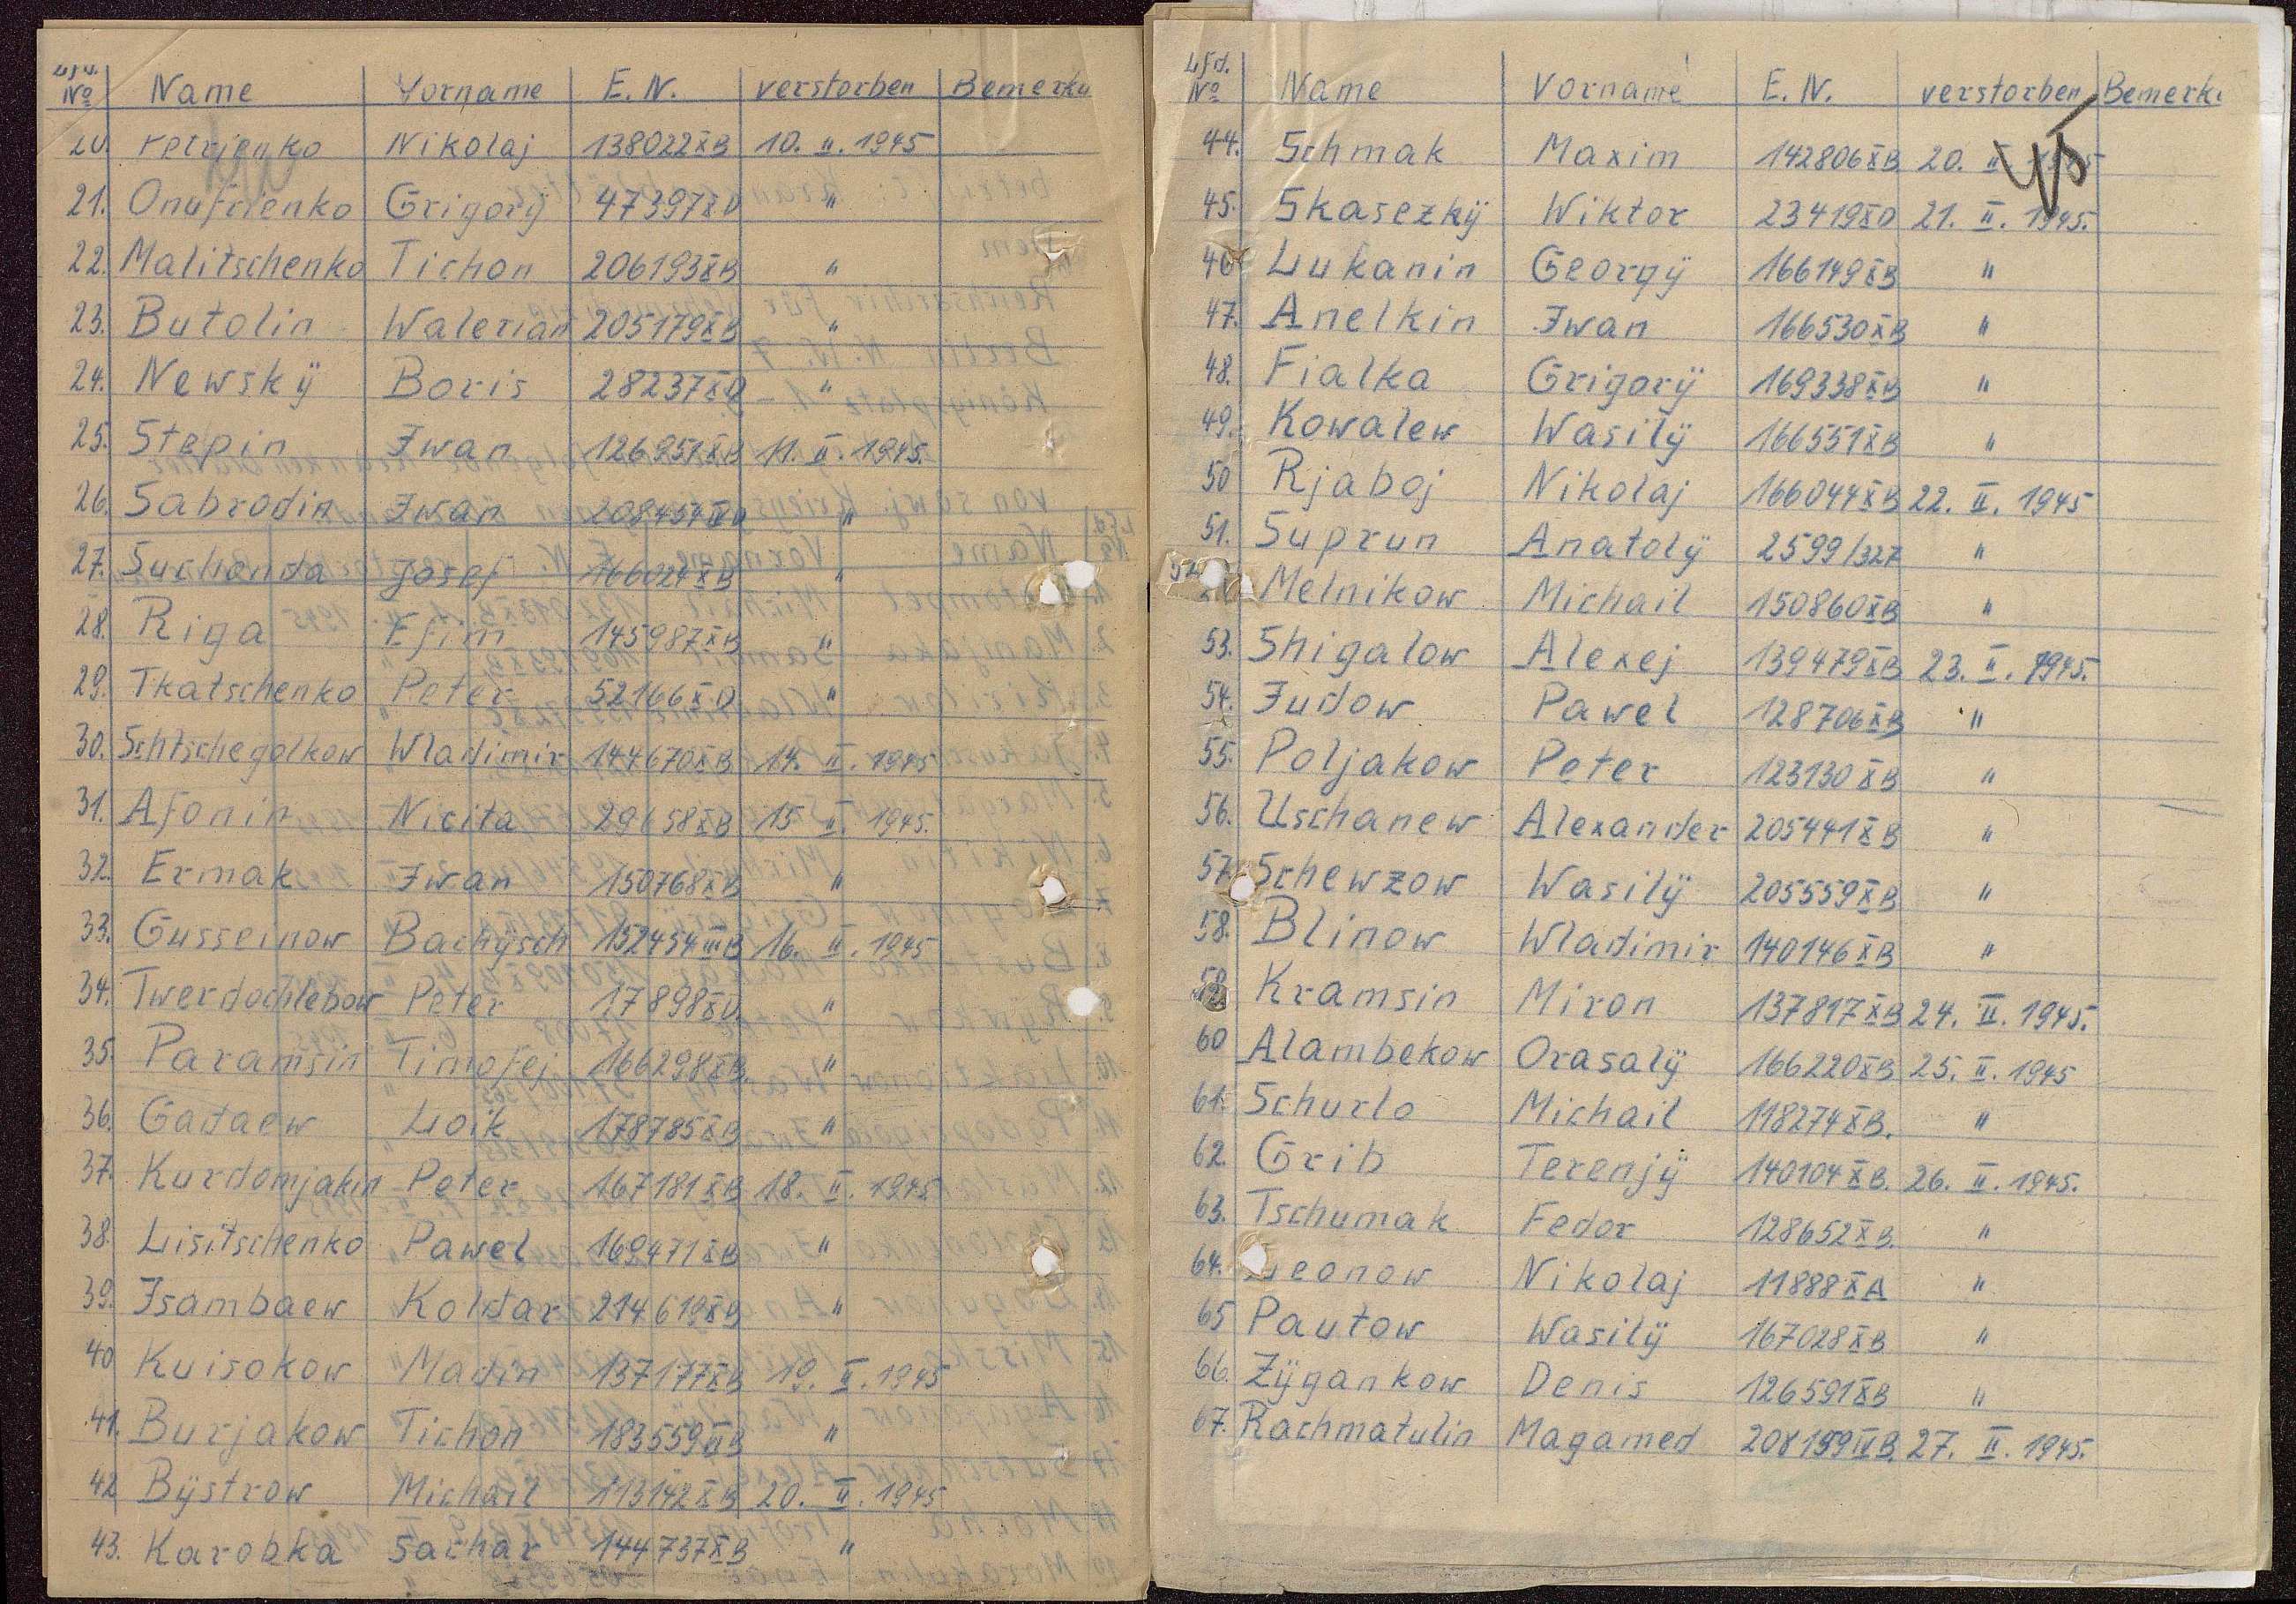 Lfd. No Name Vorname E. N. verstorben Bemerku
20. Petrjenko Nikolaj 138022 XB 10. II. 1945
21. Onufrienko Grigorÿ 47397 XD "
22. Malitschenko Tichon 206193 XB "
23. Butolin Walerian 205179 XB "
24. Newskÿ Boris 28237 XD "
25. Stepin Iwan 126951 XB 11. II. 1945.
26. Sabrodin Iwan "
27. Suchonda Josef 166024 XB "
28. Riga Efim 145987 XB "
29. Tkatschenko Peter 52166 XD "
30. Schtschegolkow Wladimir 144670 XB 14. II. 1945
31. Afonin Nicita 29658 XB 15 II. 1945.
32. Ermak Iwan 150768 XB "
33. Gusseinow Bachÿsch 152454 IIIB 16. II. 1945
34. Twerdochlebow Peter 17898 XD "
35. Paramsin Timofej 166298 XB. "
36. Gadaew Loik 178785 XB "
37. Kurdomjakin Peter 167181 XB 18. II. 1945
38. Lisitschenko Pawel 169471 XB "
39. Isambaew Koldar 214619 XB "
40 Kuisokow Madin 137177 XB 19. II. 1945
41. Burjakow Tichon "
42 Bÿstrow Michail 113142 XB 20. II. 1945
43. Karobka Sachar 144737 XB "
Lfd. No Name Vorname E. N. verstorben Bemerku
44. Schmak Maxim 142806 XB 20. II 1945
45. Skasezkÿ Wiktor 23419 XD 21. II. 1945.
46 Lukanin Georgÿ 166149 XB "
47. Anelkin Iwan 166530 XB "
48. Fialka Grigorÿ 169338 XB "
49. Kowalew Wasilÿ 166551 XB "
50 Rjaboj Nikolaj 166044 XB 22. II. 1945
51. Suprun Anatolÿ 2599/327 "
52 Melnikow Michail 150860 XB "
53. Shigalow Alexej 139479 XB 23. II. 1945.
54. Judow Pawel 128706 XB "
55. Poljakow Peter 123130 XB "
56. Uschanew Alexander 205441 XB "
57. Schewzow Wasilÿ 205559 XB "
58. Blinow Wladimir 140146 XB "
59. Kramsin Miron 137817 XB 24. II. 1945.
60 Alambekow Orasalÿ 166220 XB 25. II. 1945
61. Schurlo Michail 118274 XB. "
62. Grib Terenjÿ 140104 XB. 26. II. 1945.
63. Tschumak Fedor 128652 XB. "
64. Leonow Nikolaj 11888 XA "
65 Pautow Wasilÿ 167028 XB "
66. Zÿgankow Denis 126591 XB "
67. Rachmatulin Magamed 208199 IVB. 27. II. 1945.